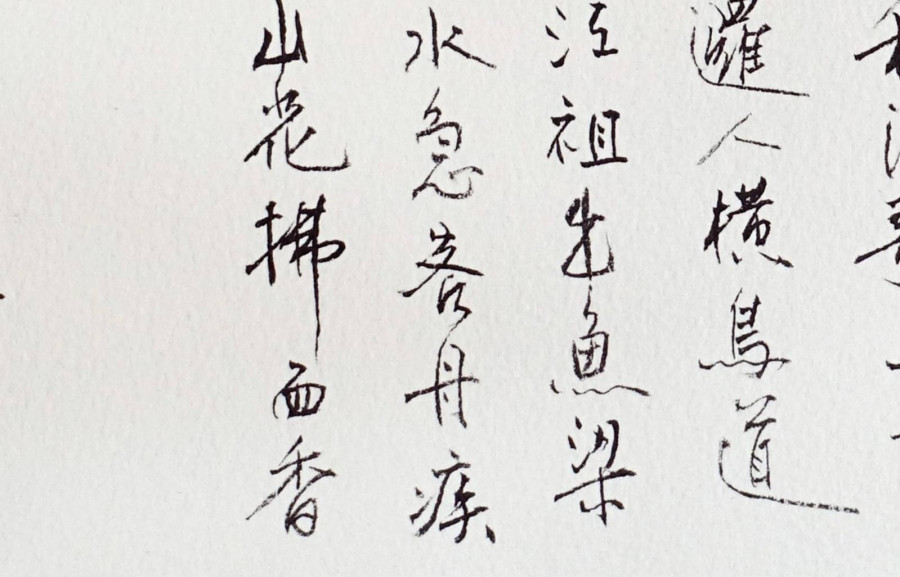 邏人横鳥道
江祖出魚梁
水急客舟疾
山花拂面香